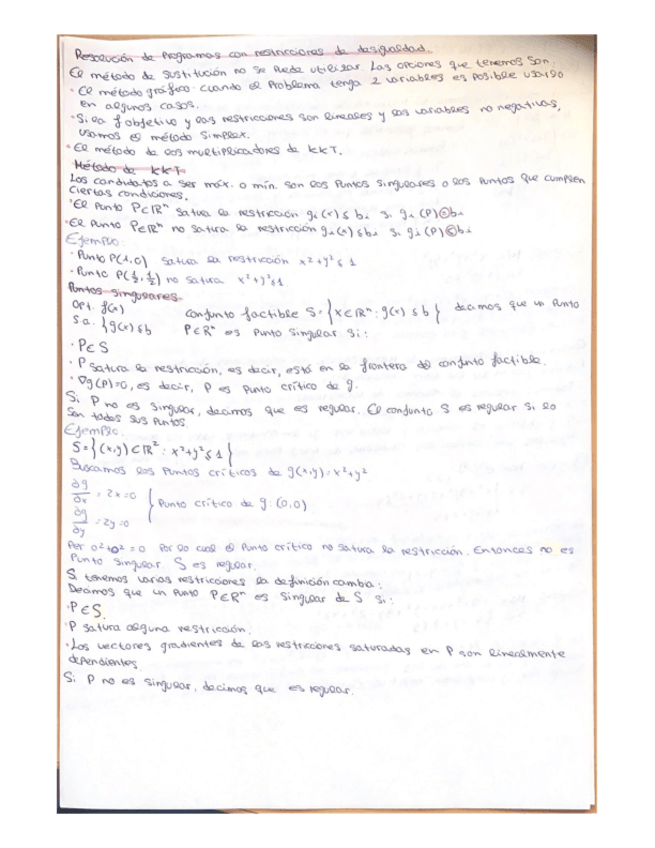 Resolución de Programas con restricciones de desigualdad.
El método de sustitución no se puede utilizar. Las opciones que tenemos son:
· El método gráfico: cuando el Problema tenga 2 variables es posible usarlo
en algunos casos.
· Si la f objetivo y las restricciones son lineales y las variables no negativas,
usamos el método Simplex.
· El método de los multiplicadores de KKT.
Método de KKT.
Los candidatos a ser máx. o mín. son los Puntos singulares o los Puntos que cumplen
ciertas condiciones.
· El Punto P∈ℝⁿ satura la restricción gᵢ(x)≤bᵢ si gᵢ(P)=bᵢ
· El Punto P∈ℝⁿ no satura la restricción gᵢ(x)≤bᵢ si gᵢ(P)<bᵢ
Ejemplo:
· Punto P(1,0) satura la restricción x²+y²≤1
· Punto P(½,½) no satura x²+y²≤1
Puntos singulares.
Opt. f(x)
s.a. {g(x)≤b
conjunto factible S={x∈ℝⁿ: g(x)≤b} decimos que un Punto
P∈ℝⁿ es Punto singular si:
· P∈S
· P satura la restricción, es decir, está en la frontera del conjunto factible.
· ∇g(P)=0, es decir, P es Punto crítico de g.
Si P no es singular, decimos que es regular. El conjunto S es regular si lo
son todos sus Puntos.
Ejemplo.
S={(x,y)∈ℝ²: x²+y²≤1}
Buscamos los Puntos críticos de g(x,y)=x²+y²
∂g/∂x = 2x=0
∂g/∂y = 2y=0
} Punto crítico de g: (0,0)
Per 0²+0²=0 Por lo cual el Punto crítico no satura la restricción. Entonces no es
Punto singular. S es regular.
Si tenemos varias restricciones la definición cambia:
Decimos que un Punto P∈ℝⁿ es singular de S si:
· P∈S.
· P satura alguna restricción.
· Los vectores gradientes de las restricciones saturadas en P son linealmente
dependientes.
Si P no es singular, decimos que es regular.